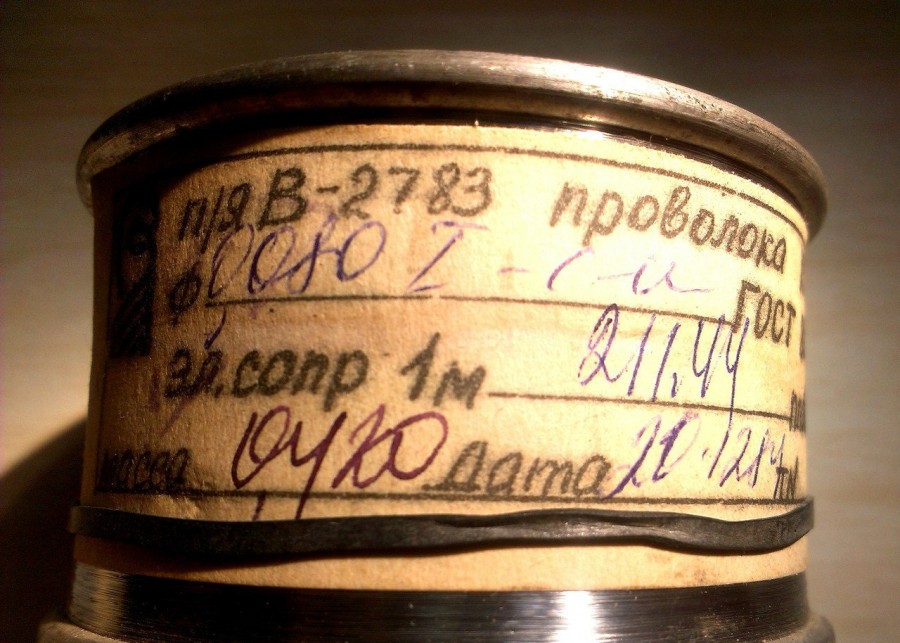 п/я В-2783 проволока
ф 0,080 I - с-а ГОСТ
эл.сопр 1м 211,44
масса 0420 Дата 20.12.84